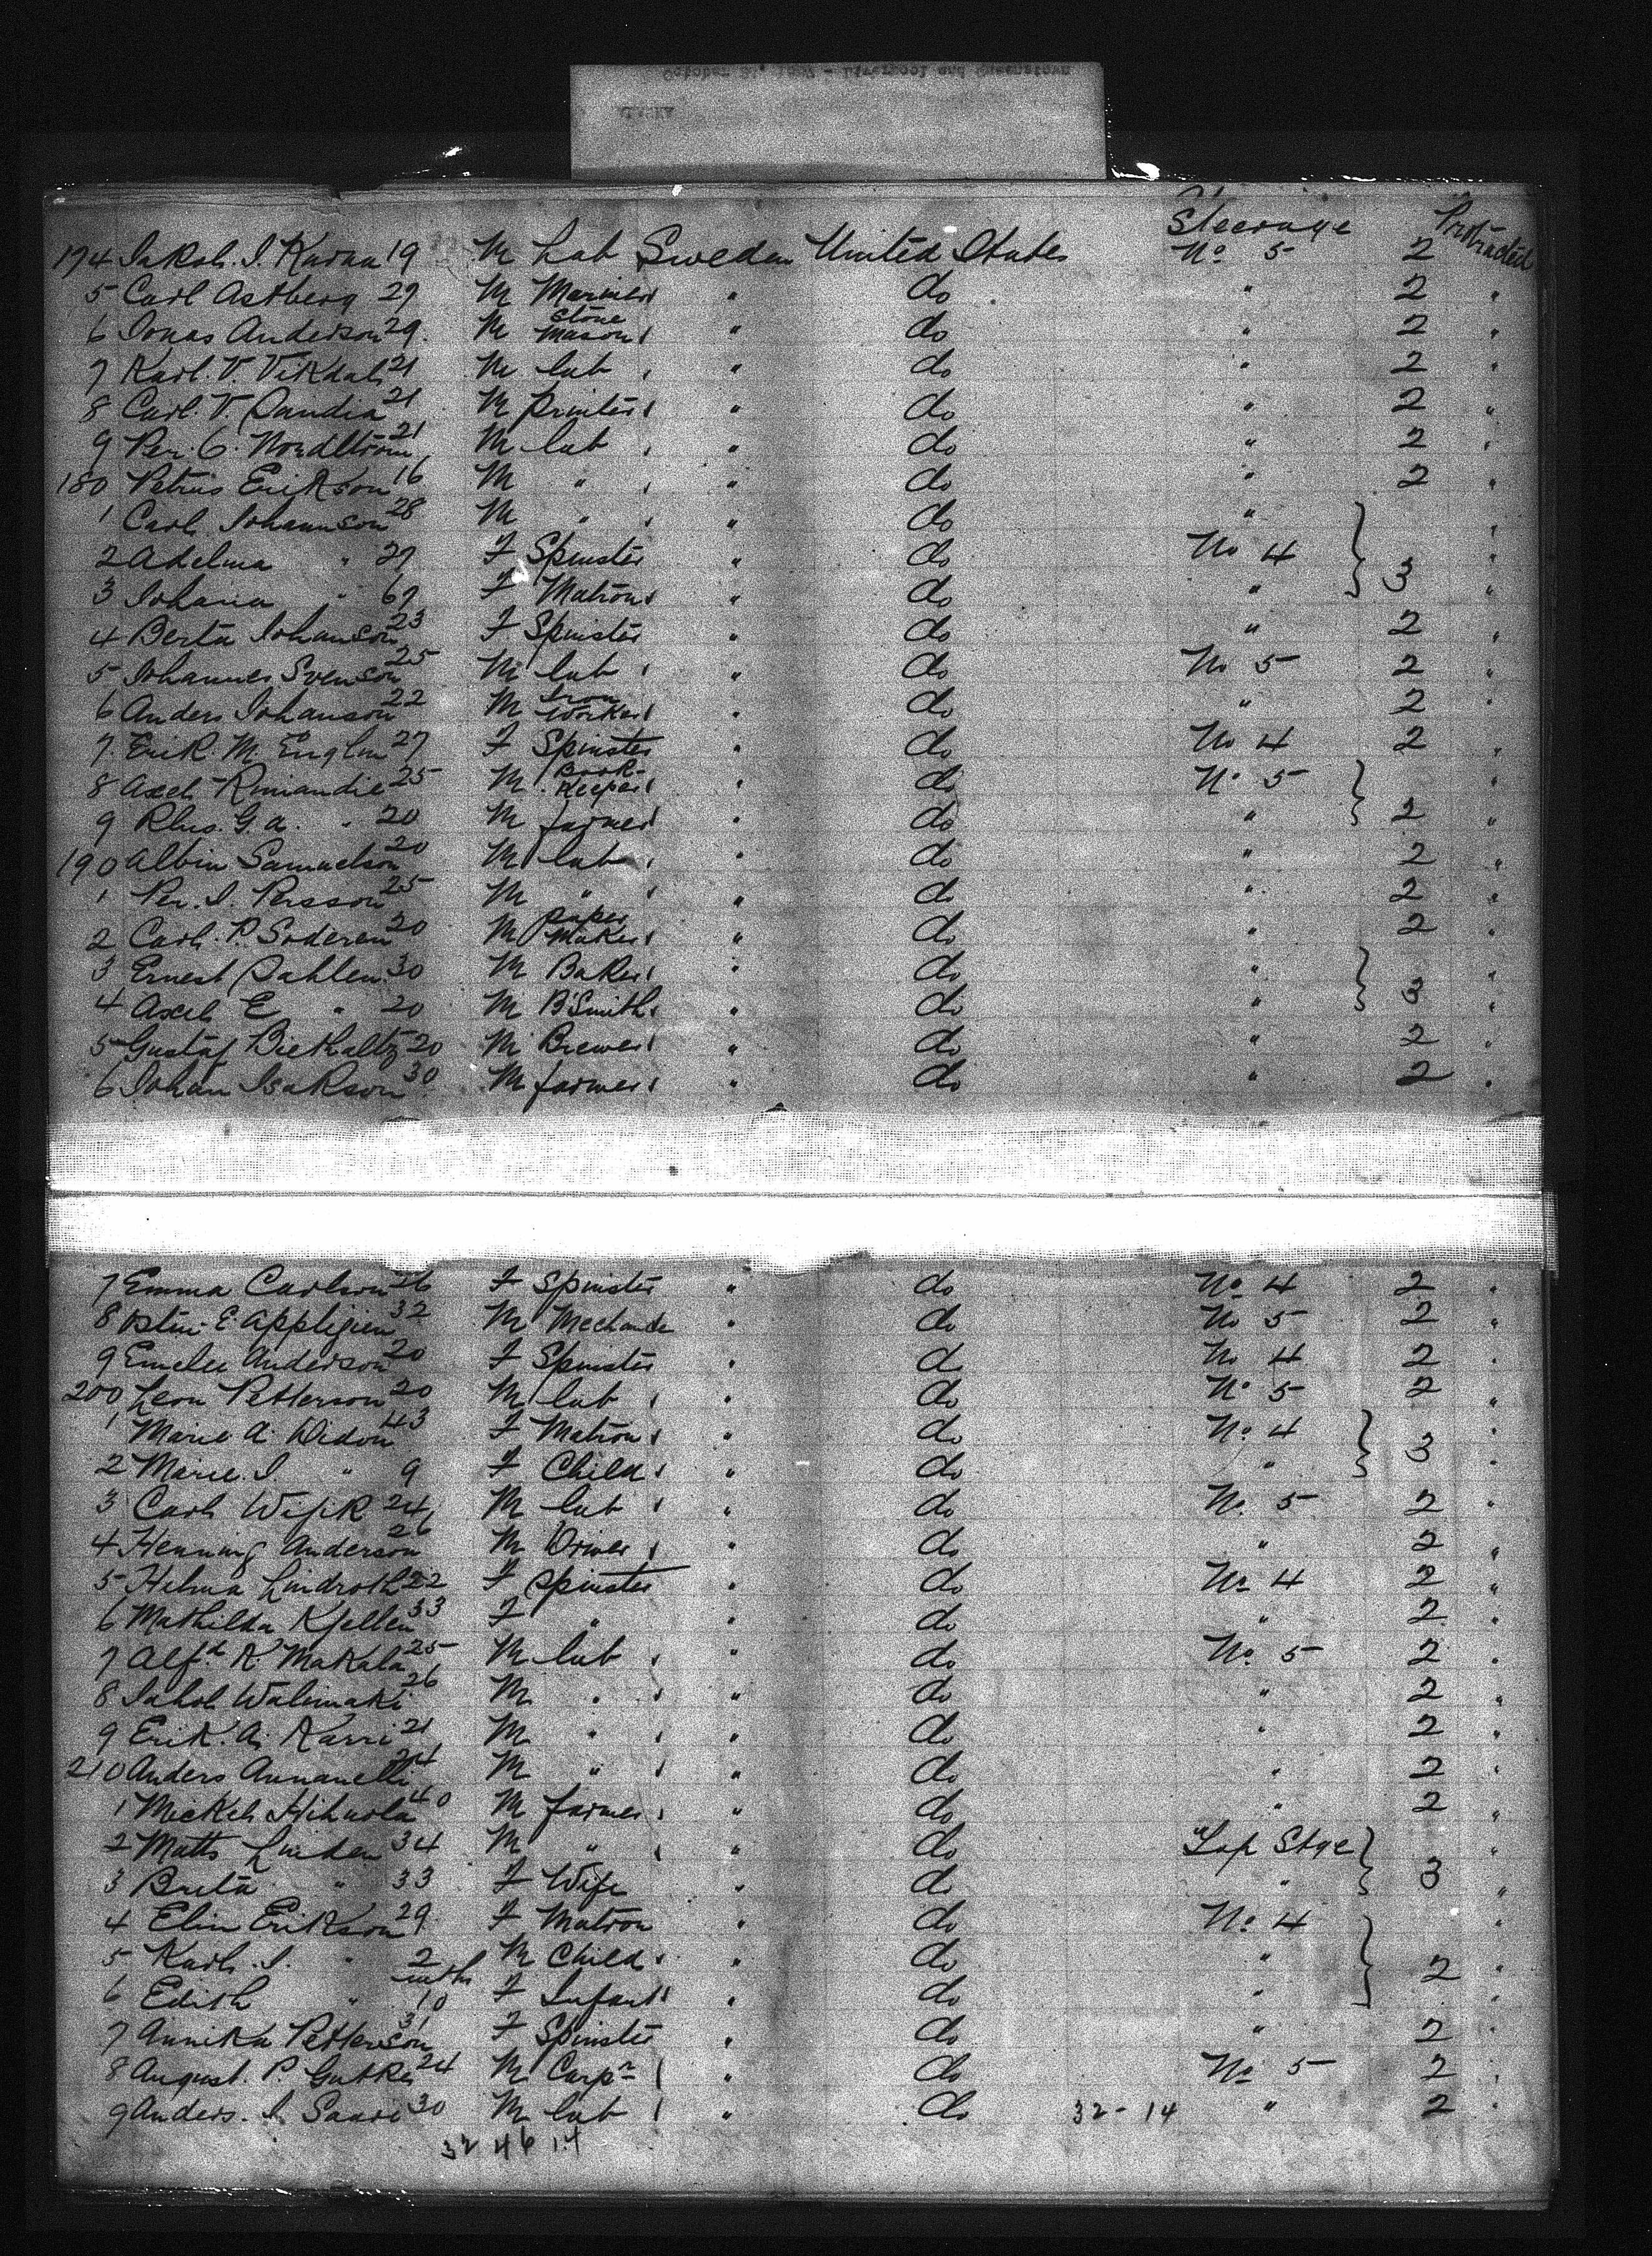 October 31, 1887 - Liverpool and Queenstown
ALASKA
Steerage Protracted
174 Jakob. I. Karaa 19 M Lab Sweden United States No 5 2
5 Carl Astberg 29 M Mariner " do " 2 "
6 Jonas Anderson 29 M Stone Mason " do " 2 "
7 Karl. V. Vikdal 21 M lab " do " 2 "
8 Carl. V. Sandia 21 M printer " do " 2 "
9 Per. G. Nordltrom 21 M lab " do " 2 "
180 Petrus Erikson 16 M " " do " 2 "
1 Carl Johannson 28 M " " do " "
2 Adelma " 27 F Spinster " do No 4 "
3 Johana " 67 F Matron " do " 3 "
4 Berta Johanson 23 F Spinster " do " 2 "
5 Johannes Svenson 25 M lab " do No 5 2 "
6 Anders Johanson 22 M Iron Worker " do " 2 "
7 Erik. M. Englun 27 F Spinster " do No 4 2 "
8 Axel 25 M Book-Keeper " do No 5 "
9 G. A. " 20 M farmer " do " 2 "
190 Albin Samuelson 20 M lab " do " 2 "
1 Per. I. Persson 25 M " " do " 2 "
2 Carl. P. Soderen 20 M paper Maker " do " 2 "
3 Ernest Dahlen 30 M Baker " do " "
4 Axel E " 20 M B'Smith " do " 3 "
5 Gustaf Biethaltz 20 M Brewer " do " 2 "
6 Johan Isakson 30 M farmer " do " 2 "
7 Emma Carlson 26 F Spinster " do No 4 2 "
8 E. Appligien 32 M Mechanic " do No 5 2 "
9 Emelie Anderson 20 F Spinster " do No 4 2 "
200 Leon Petterson 20 M lab " do No 5 2 "
1 Marie A. Didon 43 F Matron " do No 4 "
2 Marie. I. " 9 F Child " do " 3 "
3 Carl Wifik 24 M lab " do No 5 2 "
4 Henning Anderson 26 M Driver " do " 2 "
5 Helma Lindroth 22 F Spinster " do No 4 2 "
6 Mathilda Kjellen 33 F " " do " 2 "
7 Alfd K. Makala 25 M lab " do No 5 2 "
8 Jakob Walimaki 26 M " " do " 2 "
9 Erik. A. Karri 21 M " " do " 2 "
210 Anders Annanelli 24 M " " do " 2 "
1 Mickel Hihnola 40 M farmer " do " 2 "
2 Matts Linden 34 M " " do "Lap Stge "
3 Brita " 33 F Wife " do " 3 "
4 Elin Erikson 29 F Matron " do No 4 "
5 Karl. I. " 2 M Child " do " 2 "
6 Edith " mths 10 F Infant " do " "
7 Annika Petterson 31 F Spinster " do " 2 "
8 August. P. Gutke 24 M Carpr " do No 5 2 "
9 Anders. I. Saari 30 M lab " do 32-14 " 2 "
32 46 14